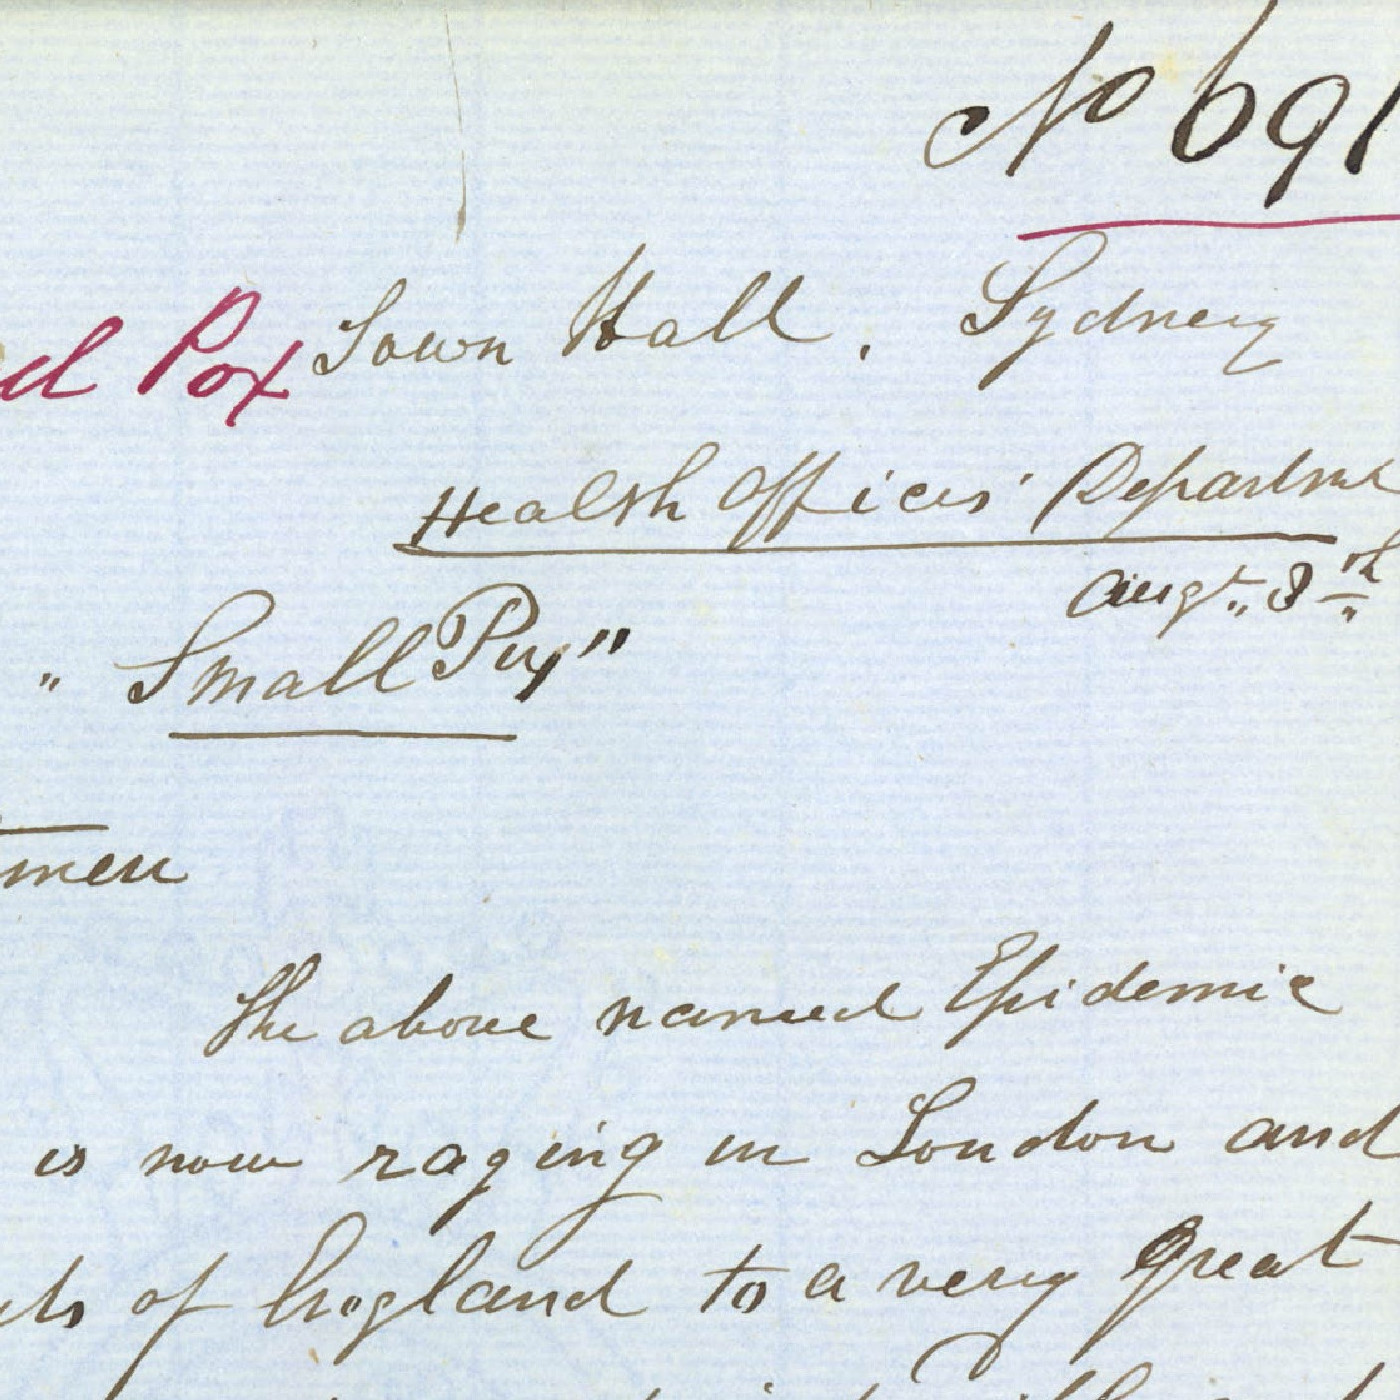 No 691
Pox
Town Hall, Sydney
Health Officers' Departmt
Augt 8th
"Small Pox"
men
The above named Epidemic
is now raging in London and
of England to a very great